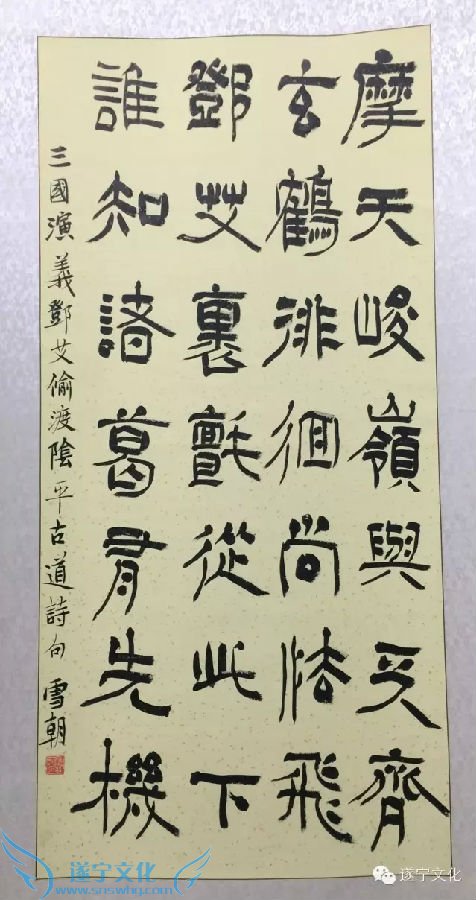 摩天峻嶺與天齊
玄鶴徘徊尚怯飛
鄧艾裹氈從此下
誰知諸葛有先機
三國演義鄧艾偷渡陰平古道詩句 雪朝
遂宁文化
www.snswhg.com
遂宁文化